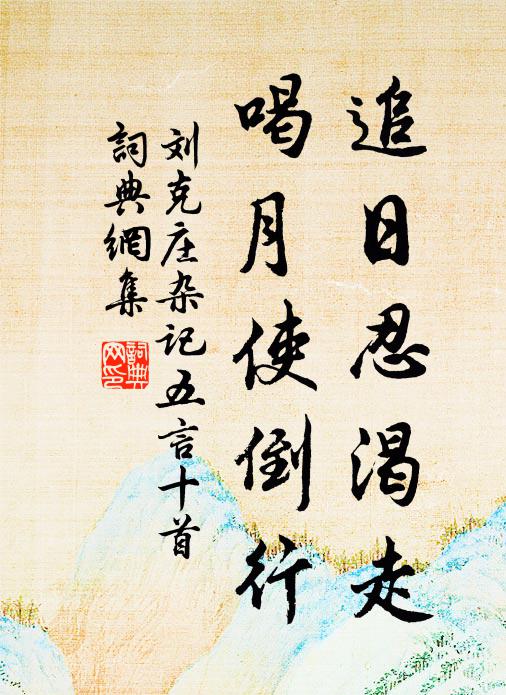 追日忍渴走
喝月使倒行
刘克庄杂记五言十首
詞典網集
詞典
网印